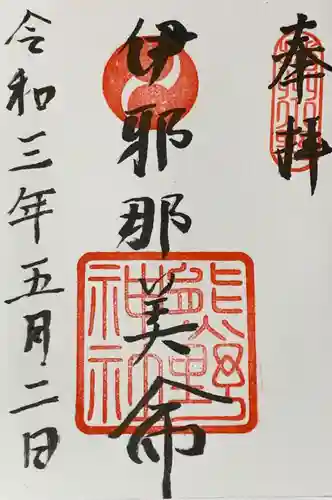 奉拝
伊邪那美命
熊野神社
令和三年五月二日